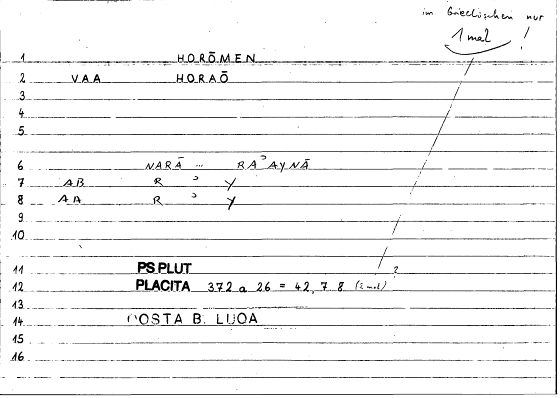 im Griechischen nur
1 mal !
1 HORŌMEN
2 VAA HORAŌ
3
4
5
6 NARĀ ... RAʾAYNĀ
7 AB R ʾ Y
8 AA R ʾ Y
9
10
11 PS PLUT ?
12 PLACITA 372 a 26 = 42, 7 8 (2 mal)
13
14 QOSTA B. LUQA
15
16